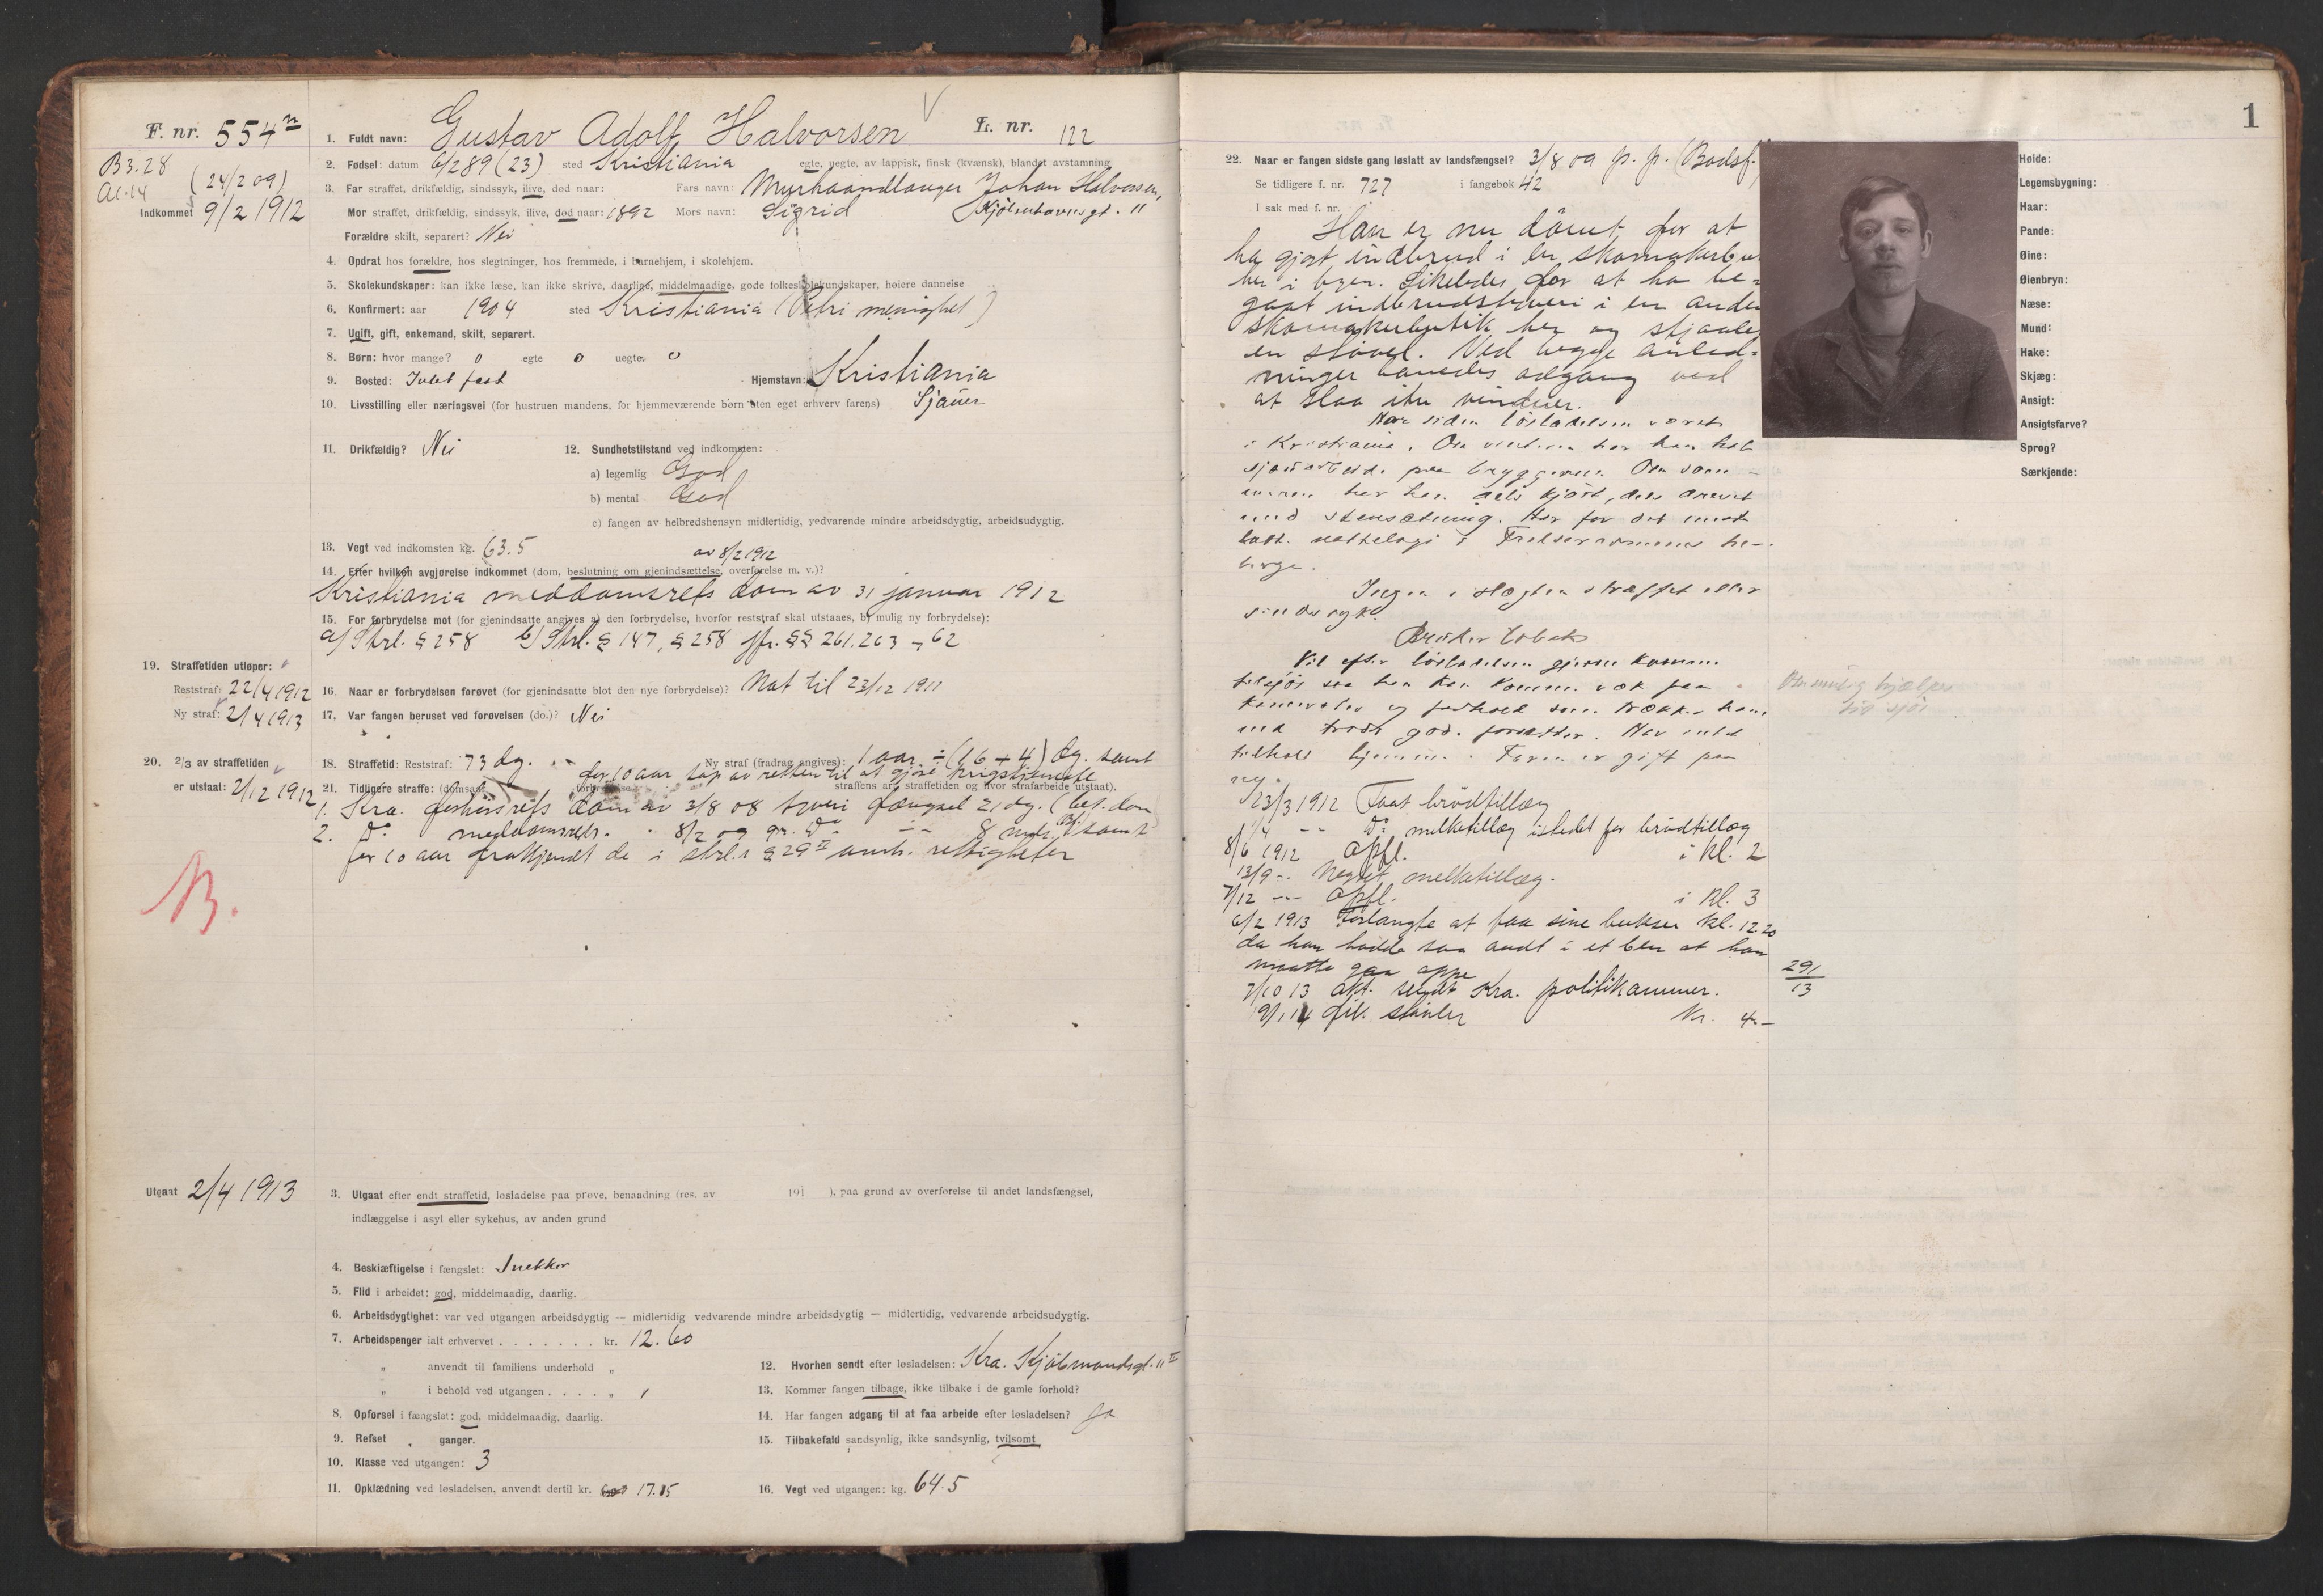 F. nr. 554
B 3.28
(24/2 09)
Indkommet 9/2 1912
1. Fuldt navn: Gustav Adolf Halvorsen L. nr. 122
2. Fødsel: datum 6/2 89 (23) sted Kristiania egte, uegte, av lappisk, finsk (kvænsk), blandet avstamning
3. Far straffet, drikfældig, sindssyk, ilive, død naar: Fars navn: Murhaandlanger Johan Halvorsen,
Mor straffet, drikfældig, sindssyk, ilive, død naar: 1892 Mors navn: Sigrid
Forældre skilt, separert? Nei
4. Opdrat hos forældre, hos slegtninger, hos fremmede, i barnehjem, i skolehjem.
5. Skolekundskaper: kan ikke læse, kan ikke skrive, daarlige, middelmaadige, gode folkeskolekundskaper, høiere dannelse
6. Konfirmert: aar 1904 sted Kristiania (Petri menighet)
7. Ugift, gift, enkemand, skilt, separert.
8. Børn: hvor mange? 0 egte 0 uegte: 0
9. Bosted: Intet fast Hjemstavn: Kristiania
10. Livsstilling eller næringsvei (for hustruen mandens, for hjemmeværende børn uten eget erhverv farens) Sjauer
11. Drikfældig? Nei 12. Sundhetstilstand ved indkomsten:
a) legemlig God
b) mental God
c) fangen av helbredshensyn midlertidig, vedvarende mindre arbeidsdygtig, arbeidsudygtig.
13. Vegt ved indkomsten kg. 63.5 av 8/2 1912
14. Efter hvilken avgjørelse indkommet (dom, beslutning om gjenindsættelse, overførelse m. v.)?
Kristiania meddomsrets dom av 31 januar 1912
15. For forbrydelse mot (for gjenindsatte angives a) den forbrydelse, hvorfor reststraf skal utstaaes, b) mulig ny forbrydelse):
a) Strl. § 258 b) Strl. § 147, § 258 jfr. §§ 261. 263 - 62
19. Straffetiden utløper:
Reststraf: 22/4 1912
Ny straf: 2/4 1913
16. Naar er forbrydelsen forøvet (for gjenindsatte blot den nye forbrydelse)? Nat til 23/12 1911
17. Var fangen beruset ved forøvelsen (do.)? Nei
20. 2/3 av straffetiden
er utstaat: 2/12 1912
18. Straffetid: Reststraf: 73 dg. Ny straf (fradrag angives): 1 aar ÷ (16 + 4) dg. samt
for 10 aar tap av retten til at gjøre krigstjeneste
21. Tidligere straffe: (domsaar, forbrydelse, straffens art, straffetiden og hvor strafarbeide utstaat).
1. Kra. forhørsrets dom av 3/8 08 tyveri fængsel 21 dg. (bet. dom
2. Do meddomsrets - 8/2 09 gr. Do - - 8 mdr. samt
for 10 aar frakjendt de i strl.s § 29 II omh. rettigheter
B.
Utgaat 2/4 1913
3. Utgaat efter endt straffetid, løsladelse paa prøve, benaadning (res. av 191 ), paa grund av overførelse til andet landsfængsel,
indlæggelse i asyl eller sykehus, av anden grund
4. Beskiæftigelse i fængslet: Snekker
5. Flid i arbeidet: god, middelmaadig, daarlig.
6. Arbeidsdygtighet: var ved utgangen arbeidsdygtig — midlertidig vedvarende mindre arbeidsdygtig — midlertidig, vedvarende arbeidsudygtig.
7. Arbeidspenger ialt erhvervet . . . . . . . kr. 12.60
„ anvendt til familiens underhold „
„ i behold ved utgangen . . . . „
8. Opførsel i fængslet: god, middelmaadig, daarlig.
9. Refset ganger.
10. Klasse ved utgangen: 3
11. Opklædning ved løsladelsen, anvendt dertil kr. 17.15
12. Hvorhen sendt efter løsladelsen: Kra. Kjøbmandsgt. 11 II
13. Kommer fangen tilbage, ikke tilbake i de gamle forhold?
14. Har fangen adgang til at faa arbeide efter løsladelsen? Ja
15. Tilbakefald sandsynlig, ikke sandsynlig, tvilsomt
16. Vegt ved utgangen: kg. 64.5
1
22. Naar er fangen sidste gang løslatt av landsfængsel? 3/8 09 p. p. (Bodsf.
Se tidligere f. nr. 727 i fangebok 42
I sak med f. nr.
Han er nu dømt for at
ha gjort indbrud i en skomakerbu
her i byen. Likeledes for at ha be-
gaat indbrudstyveri i en anden
skomakerbutik her og stjaalet
en støvel. Ved begge anled-
ninger banedes adgang ved
at slaa itu vinduer.
Har siden løsladelsen været
i Kristiania. Om vinteren har han hat
sjauarbeide paa bryggerne. Om som-
meren har han dels kjørt, dels drevet
med stensætning. Har for det meste
hatt natteloge i Frelsesarmeens he-
berge.
Ingen i slegten straffet eller
sindssyk.
Bruker tobak
Vil efter løsladelsen gjerne komme
tilsjøs saa han kan komme væk fra
kamerater og forhold som trækker ham
ned trods gode forsætter. Har intet
tilhold hjemme. Faren er gift paa
ny.
23/3 1912 Faat brødtillæg
1/4 -- Do melketillæg istedet for brødtillæg
8/6 1912 Opfl. i kl. 2
13/9 -- Negtet melketillæg.
7/12 -- Opfl. i kl. 3
6/2 1913 Forlangte at faa sine bukser kl. 12.20
da han hadde saa ondt i et ben at han
maatte gaa oppe
7/10 13 Akt. sendt Kra. politikammer. 291/13
9/1 14 støvler Kr. 4.-
til sjøs
Høide:
Legemsbygning:
Haar:
Pande:
Øine:
Øienbryn:
Næse:
Mund:
Hake:
Skjæg:
Ansigt:
Ansigtsfarve?
Sprog?
Særkjende: